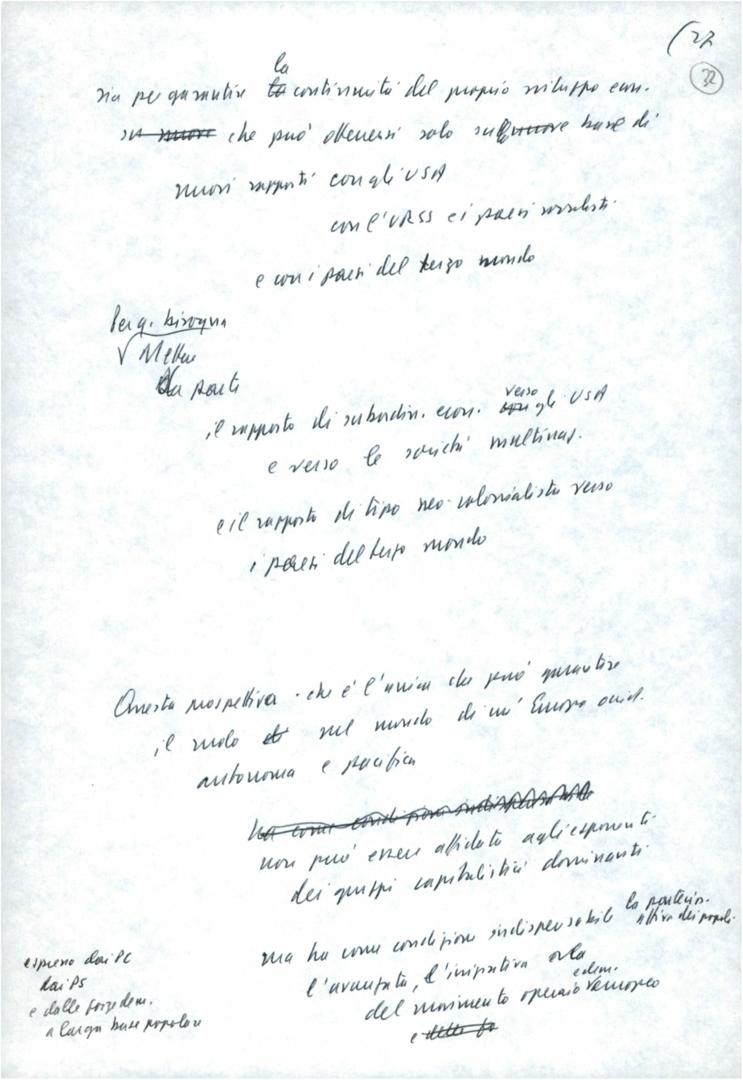 (27
32
sia per garantire la continuità del proprio sviluppo econ.
su nuove che può ottenersi solo su nuove base di
nuovi rapporti con gli USA
con l'URSS e i paesi socialisti
e con i paesi del terzo mondo
Per q. bisogna
Mettere
da parte
il rapporto di subordin. econ. verso gli USA
e verso le società multinaz.
e il rapporto di tipo neo-colonialista verso
i paesi del terzo mondo
Questa prospettiva - che è l'unica che può garantire
il ruolo nel mondo di un' Europa occid.
autonoma e pacifica
ha come condizione indispensabile
non può essere affidata agli esponenti
dei gruppi capitalistici dominanti
ma ha come condizione indispensabile la partecip.
attiva dei popoli
l'avanzata, l'iniziativa
del movimento operaio e dem. europeo
e delle fo
espresso dai PC
dai PS
e dalle forze dem.
a larga base popolare